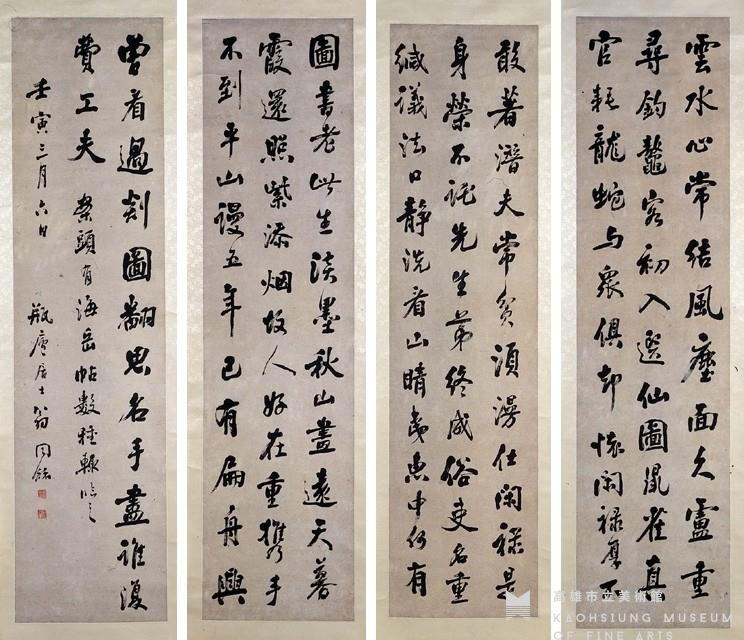 雲水心常結風塵面久盧重
尋釣鼇客初入選仙圖鼠雀真
官耗龍蛇与衆俱却懷閑祿厚不
敢著潛夫常貧須漫仕閑祿是
身榮不託先生第終成俗吏名重
緘議法口靜洗看山晴夷惠中何有
圖書老此生淡墨秋山畫遠天暮
霞還照紫添烟故人好在重攜手
不到平山謾五年已有扁舟興
曾看過剡圖翻思名手盡誰復
費工夫 案頭有海岳帖數種輒臨之
壬寅三月六日 瓶廬居士翁同龢
高雄市立美術館
KAOHSIUNG MUSEUM
OF FINE ARTS